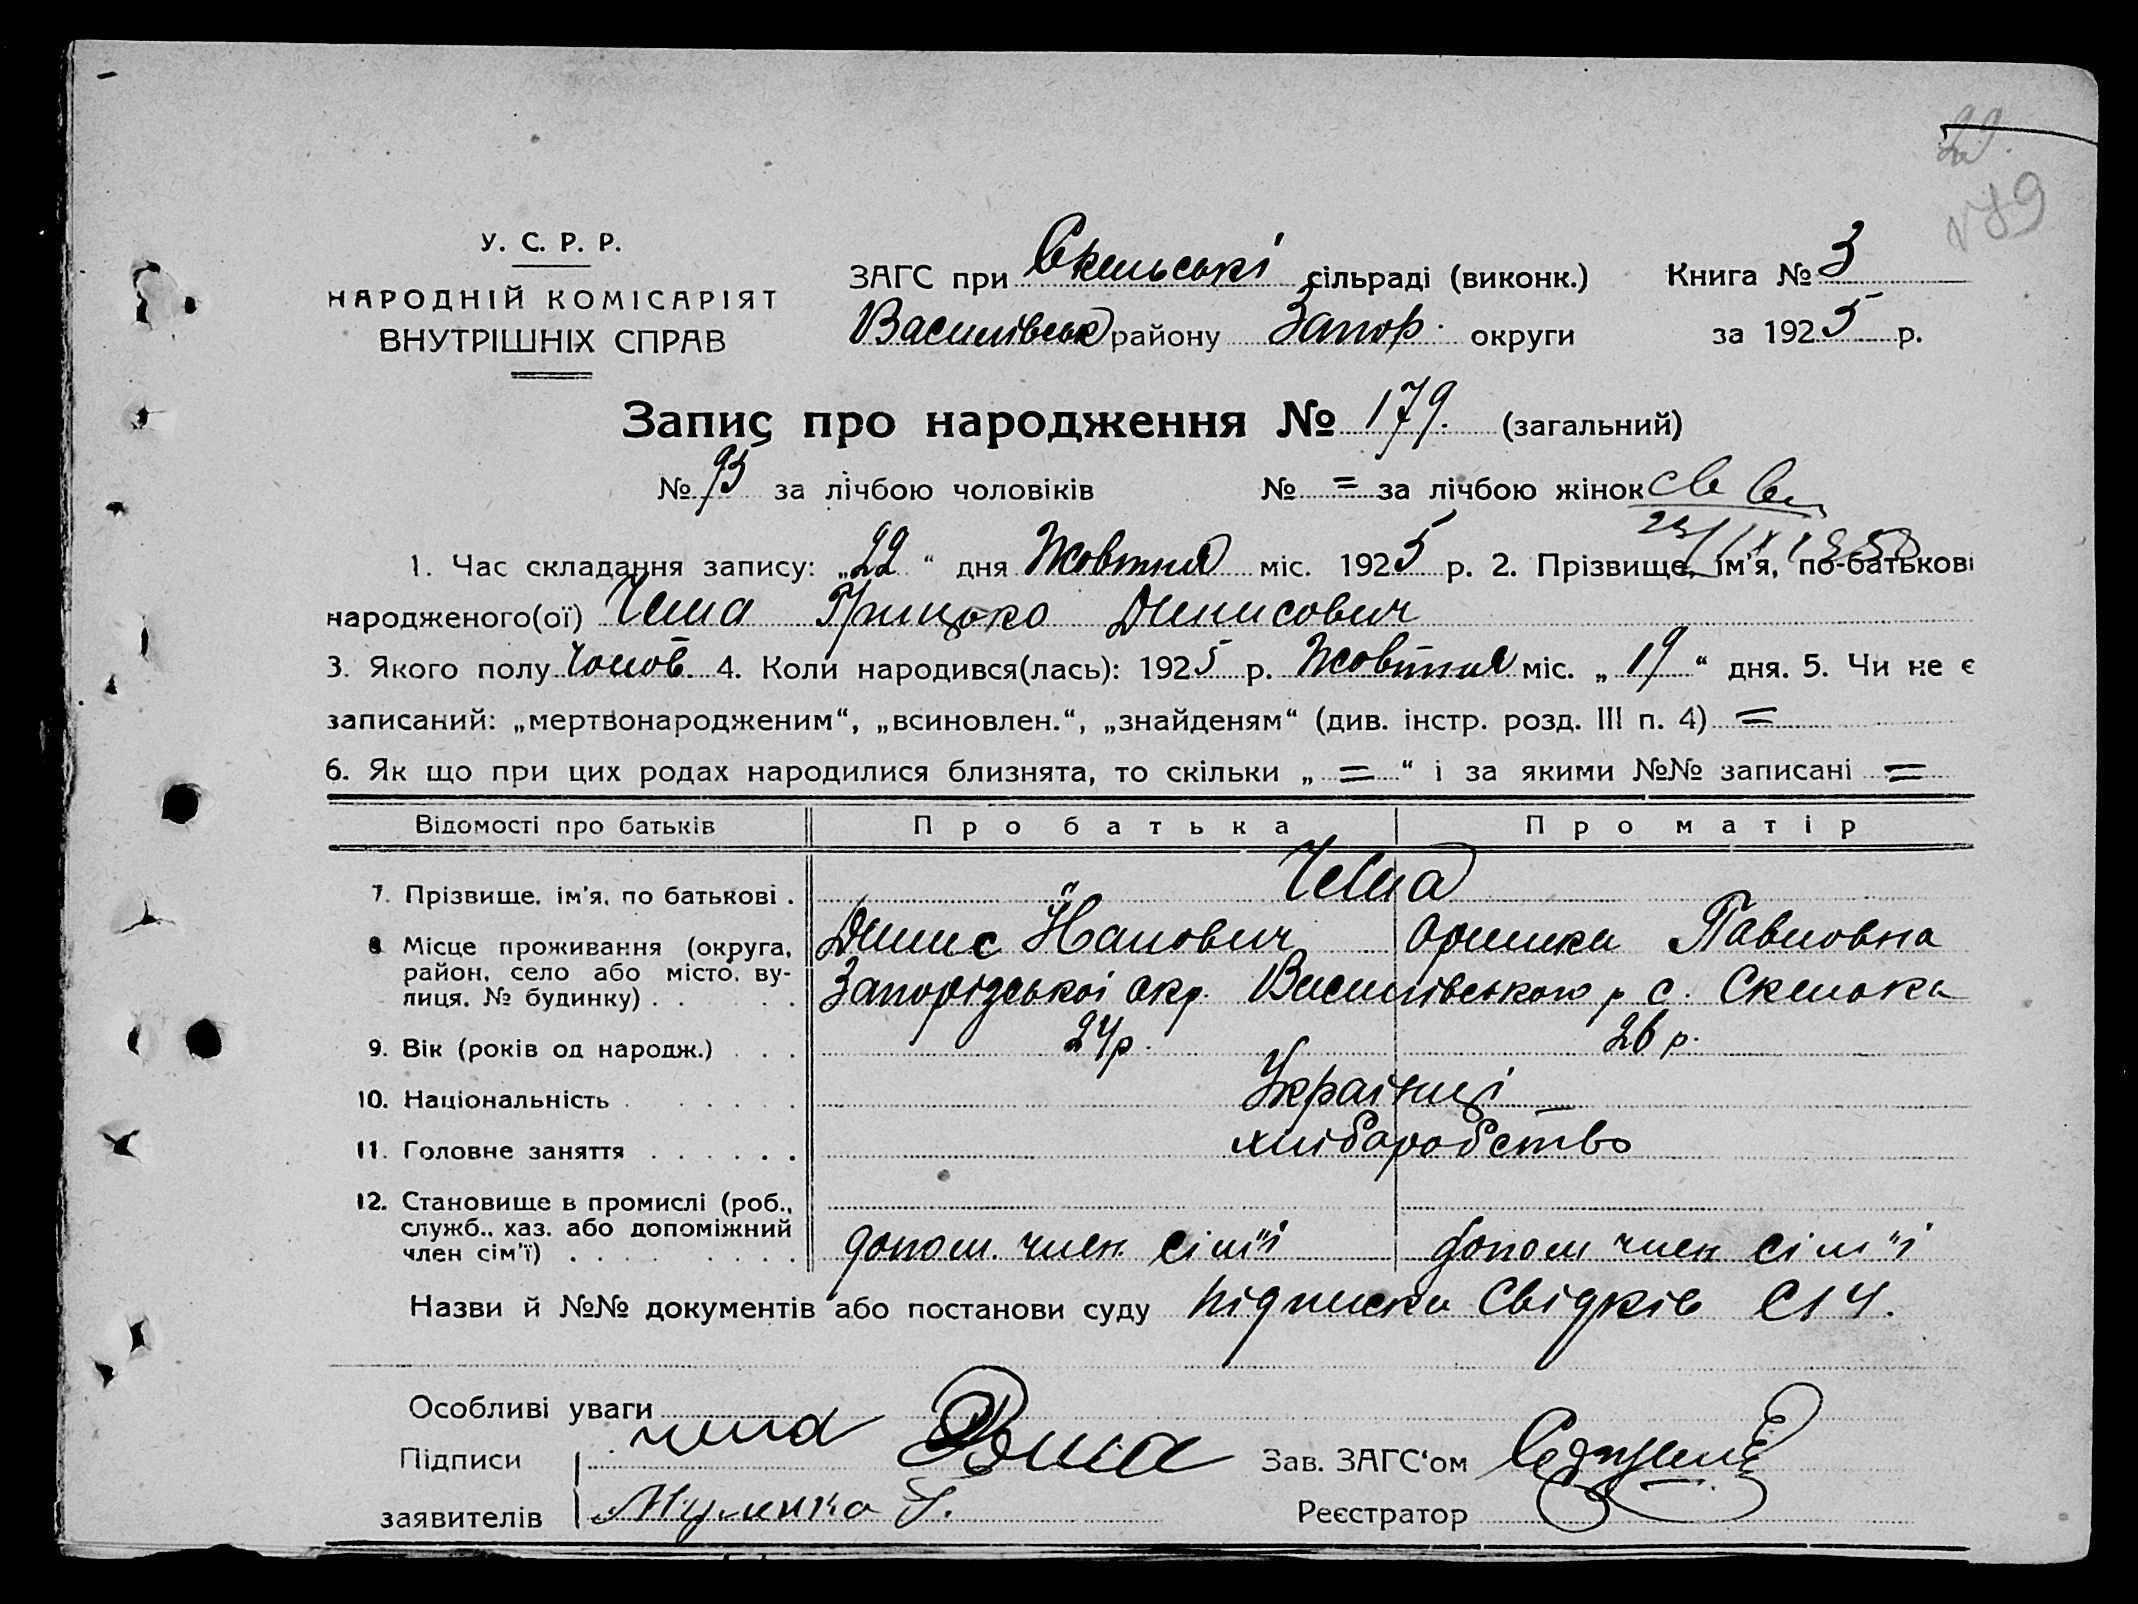 179
У. С. Р. Р.
НАРОДНІЙ КОМІСАРІЯТ
ВНУТРІШНІХ СПРАВ
ЗАГС при Скельські сільраді (виконк.) Книга № 3
Василівськ району Запор. округи за 1925 р.
Запис про народження № 179. (загальний)
№ 95 за лічбою чоловіків № = за лічбою жінок
1. Час складання запису: „22“ дня Жовтня міс. 1925 р. 2. Прізвище, ім'я, по-батькові
народженого(ої) Чеша Грицько Денисович
3. Якого полу Чолов. 4. Коли народився(лась): 1925 р. Жовтня міс. „19“ дня. 5. Чи не є
записаний: „мертвонародженим“, „всиновлен.“, „знайденям“ (див. інстр. розд. III п. 4) =
6. Як що при цих родах народилися близнята, то скільки „=“ і за якими №№ записані =
Відомості про батьків Про батька Про матір
7. Прізвище, ім'я, по батькові . Чеша
Денис Йанович Оришка Павловна
8 Місце проживання (округа, район, село або місто, вулиця, № будинку) . . . . Запорізської окр. Василівського р с. Скелька
9. Вік (років од народж.) . . . 24 р. 26 р.
10. Національність . . . . . . Українці
11. Головне заняття . . . . . . хліборобство
12. Становище в промислі (роб.,
служб., хаз. або допоміжний
член сім'ї) . . . . . . . допом. член сім"ї допом член сім"ї
Назви й №№ документів або постанови суду підписка свідків С14.
Особливі уваги
Підписи Чеша Зав. ЗАГС'ом
заявителів Реєстратор